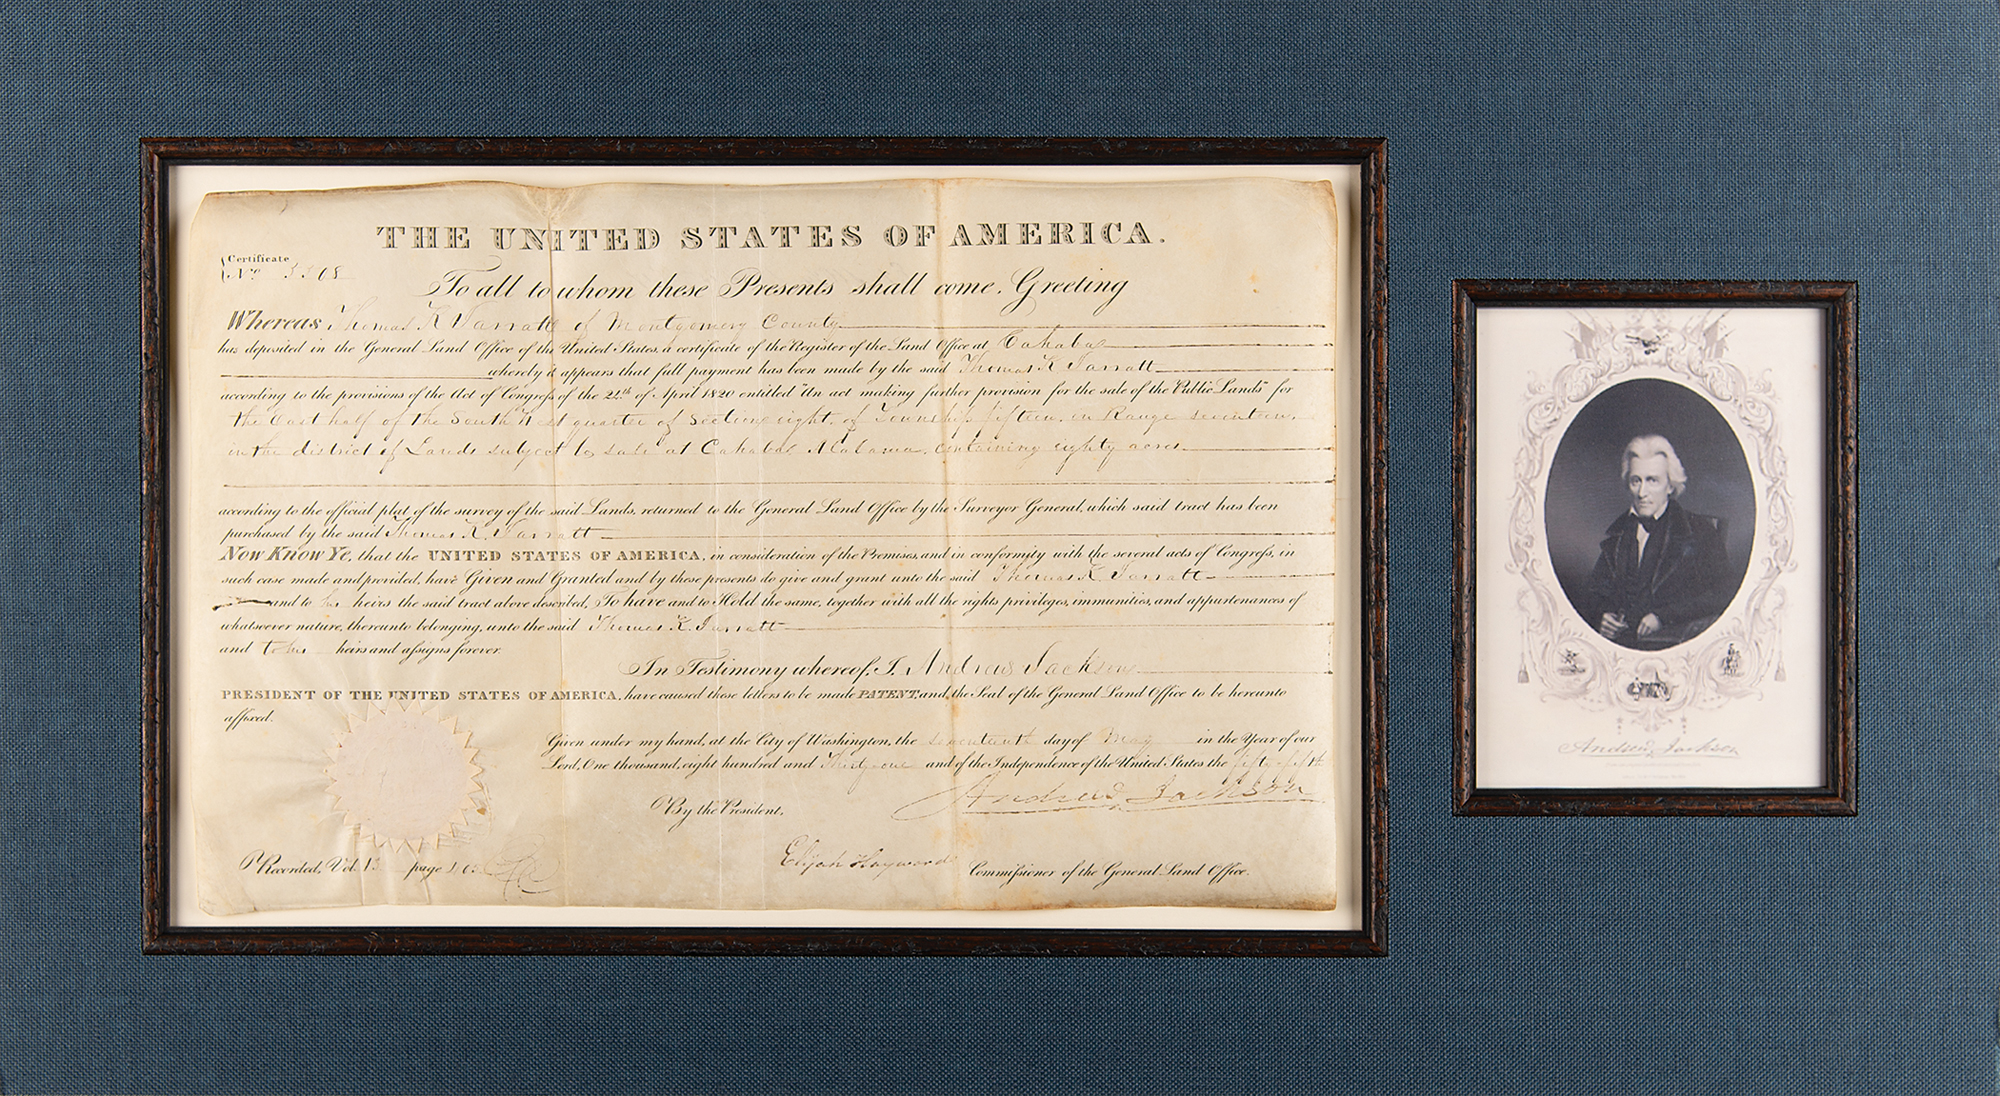 THE UNITED STATES OF AMERICA.
Certificate
No.
To all to whom these Presents shall come, Greeting
Whereas Thomas K Jarratt of Montgomery County
has deposited in the General Land Office of the United States, a certificate of the Register of the Land Office at Cahaba
whereby it appears that full payment has been made by the said Thomas K Jarratt
according to the provisions of the Act of Congress of the 24th of April 1820 entitled "An act making further provision for the sale of the Public Lands" for
the East half of the South West quarter of Section eight, of Township fifteen, on Range seventeen,
in the district of Lands subject to sale at Cahaba Alabama, containing eighty acres
according to the official plat of the survey of the said Lands, returned to the General Land Office by the Surveyor General, which said tract has been
purchased by the said Thomas K. Jarratt
NOW KNOW YE, that the UNITED STATES OF AMERICA, in consideration of the Premises, and in conformity with the several acts of Congress, in
such case made and provided, have Given and Granted and by these presents do give and grant unto the said Thomas K. Jarratt
and to his heirs the said tract above described, To have and to Hold the same, together with all the rights privileges, immunities, and appurtenances of
whatsoever nature, thereunto belonging, unto the said Thomas K. Jarratt
and to his heirs and assigns forever.
In Testimony whereof, I, Andrew Jackson
PRESIDENT OF THE UNITED STATES OF AMERICA, have caused these letters to be made PATENT, and the Seal of the General Land Office to be hereunto
affixed.
Given under my hand, at the City of Washington, the seventeenth day of May in the Year of our
Lord, One thousand, eight hundred and Thirty one and of the Independence of the United States the fifty-fifth
Andrew Jackson
By the President,
Elijah Hayward Commissioner of the General Land Office.
Recorded, Vol. 13 page
Andrew Jackson